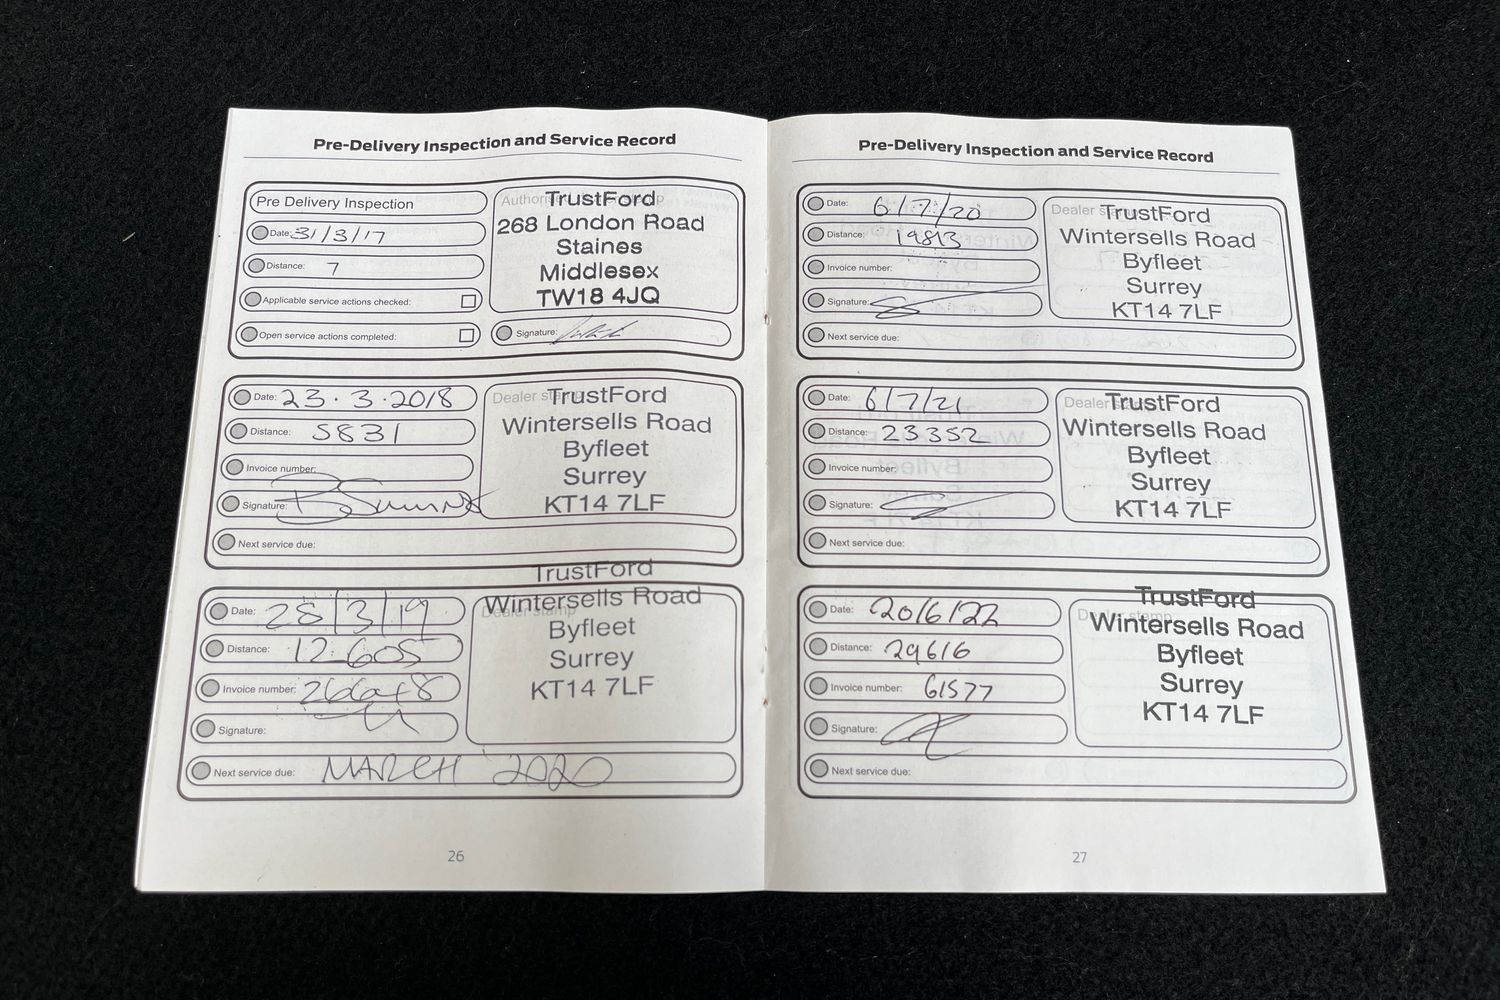 Pre-Delivery Inspection and Service Record
Pre Delivery Inspection
Date: 31/3/17
Distance: 7
Applicable service actions checked:
Open service actions completed:
TrustFord
268 London Road
Staines
Middlesex
TW18 4JQ
Signature:
Date: 23.3.2018
Distance: 5831
Invoice number:
Signature:
Next service due:
Dealer stamp
TrustFord
Wintersells Road
Byfleet
Surrey
KT14 7LF
Date: 28/3/19
Distance: 12605
Invoice number:
Signature:
Next service due: MARCH 2020
Dealer stamp
TrustFord
Wintersells Road
Byfleet
Surrey
KT14 7LF
26
Pre-Delivery Inspection and Service Record
Date: 6/7/20
Distance: 19813
Invoice number:
Signature:
Next service due:
Dealer stamp
TrustFord
Wintersells Road
Byfleet
Surrey
KT14 7LF
Date: 6/7/21
Distance: 23352
Invoice number:
Signature:
Next service due:
Dealer stamp
TrustFord
Wintersells Road
Byfleet
Surrey
KT14 7LF
Date: 20/6/22
Distance: 29616
Invoice number: 61577
Signature:
Next service due:
Dealer stamp
TrustFord
Wintersells Road
Byfleet
Surrey
KT14 7LF
27